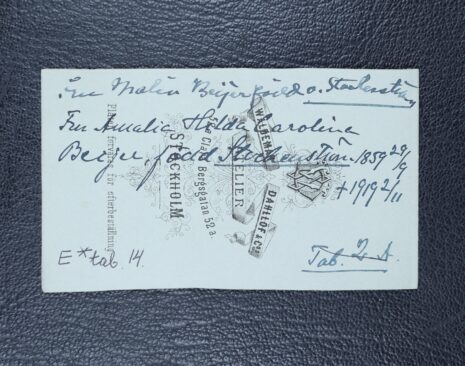 Fru Malin Beijer född v. Stockenström
Fru Amalia Hilda Carolina
Beijer, född Stockenström. 1859 29/9
+ 1919 2/11
E*tab. 14.
Tab. 2 A.
WALDEMAR DAHLLÖF & Co.
ATELIER
Bergsgatan 52 a.
STOCKHOLM
Plåten förvaras för efterbeställning